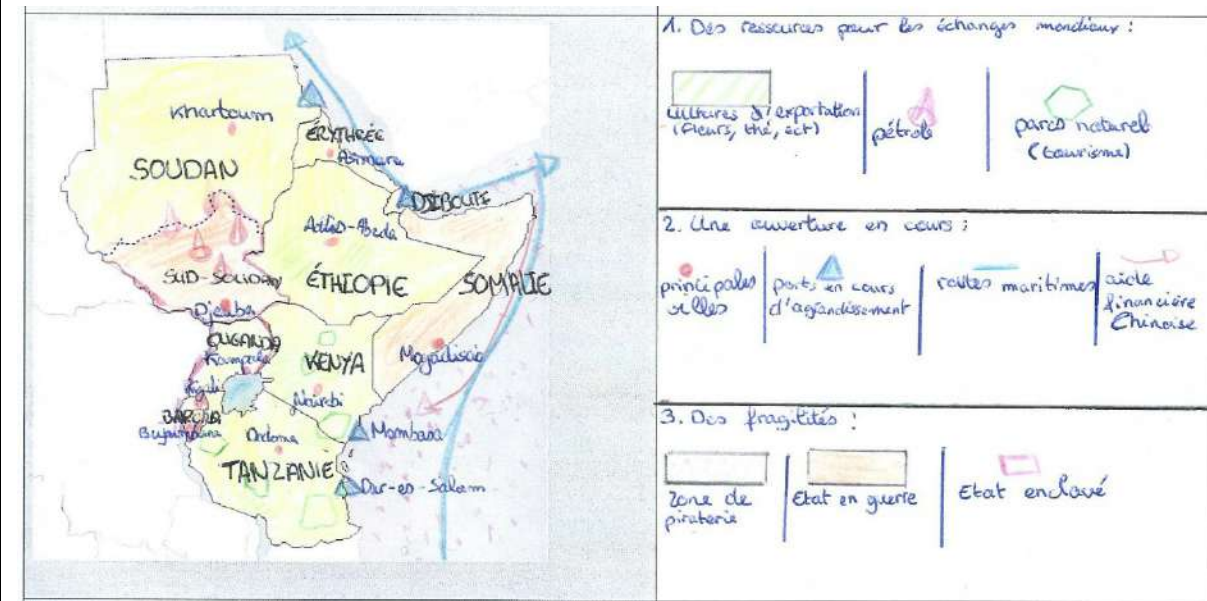 Khartoum
SOUDAN
ÉRYTHRÉE
Asmara
DJIBOUTI
Addis-Abeda
ÉTHIOPIE
SUD-SOUDAN
SOMALIE
Djeuba
OUGANDA
Kampala
KENYA
Mogadiscio
Kigali
Nairobi
Bujumbura
Dodoma
Mombasa
TANZANIE
Dar-es-Salam
1. Des ressources pour les échanges mondiaux :
cultures d'exportation
(fleurs, thé, ect)
pétrole
parcs naturel
(tourisme)
2. Une ouverture en cours :
principales
villes
ports en cours
d'agrandissement
routes maritimes
aide
financière
Chinoise
3. Des fragilités :
Zone de
piraterie
Etat en guerre
Etat enclavé